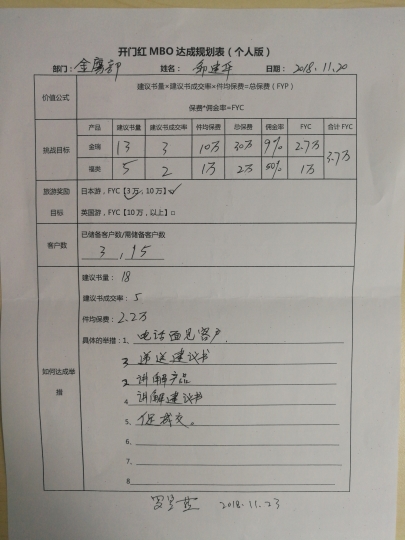 开门红 MBO 达成规划表（个人版）
部门： 姓名： 日期：2018.11.20
价值公式
建议书量×建议书成交率×件均保费=总保费（FYP）
保费*佣金率=FYC
挑战目标
产品 建议书量 建议书成交率 件均保费 总保费 佣金率 FYC 合计 FYC
金瑞 13 3 10万 30万 9% 2.7万 3.7万
福类 5 2 1万 2万 50% 1万
旅游奖励
目标
日本游，FYC【3万，10万】✓
英国游，FYC【10万，以上】□
客户数
已储备客户数/需储备客户数
3，15
如何达成举措
建议书量：18
建议书成交率：5
件均保费：2.2万
具体的举措：1、电话面见客户.
3 递送建议书
2 讲解产品
4 讲解建议书
5、促成交。
6、
7、
8、
2018.11.23